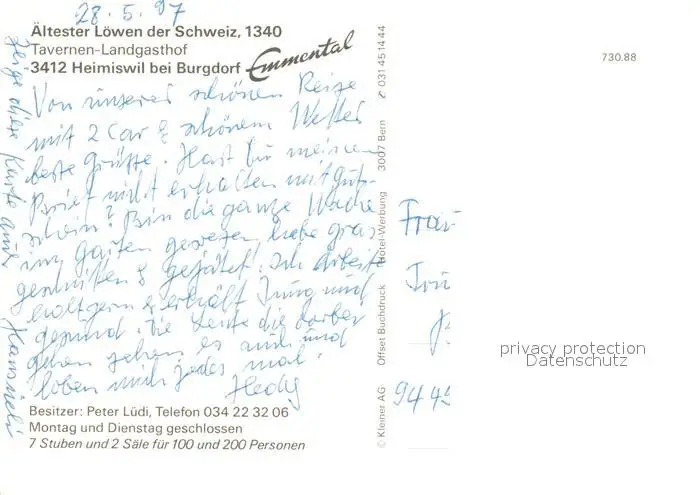 28.5.97
Ältester Löwen der Schweiz, 1340
Tavernen-Landgasthof
3412 Heimiswil bei Burgdorf Emmental
Von unserer schönen Reise
mit 2 Car & schönem Wetter
beste Grüsse. Hast Du meinen
Brief nicht erhalten mit Gut-
schein? Bin die ganze Woche
im Garten gewesen, habe Gras
geschnitten & gejätet. Ich arbeite
halt gern & erhält Jung und
gesund. Die Leute die vorbei
gehen sehen es auch und
loben mich jedes mal.
Hedy
Zeige diese Karte auch
Besitzer: Peter Lüdi, Telefon 034 22 32 06
Montag und Dienstag geschlossen
7 Stuben und 2 Säle für 100 und 200 Personen
© Kleiner AG Offset Buchdruck Hotel-Werbung 3007 Bern ✆ 031 45 14 44
730.88
Frau
944
privacy protection
Datenschutz